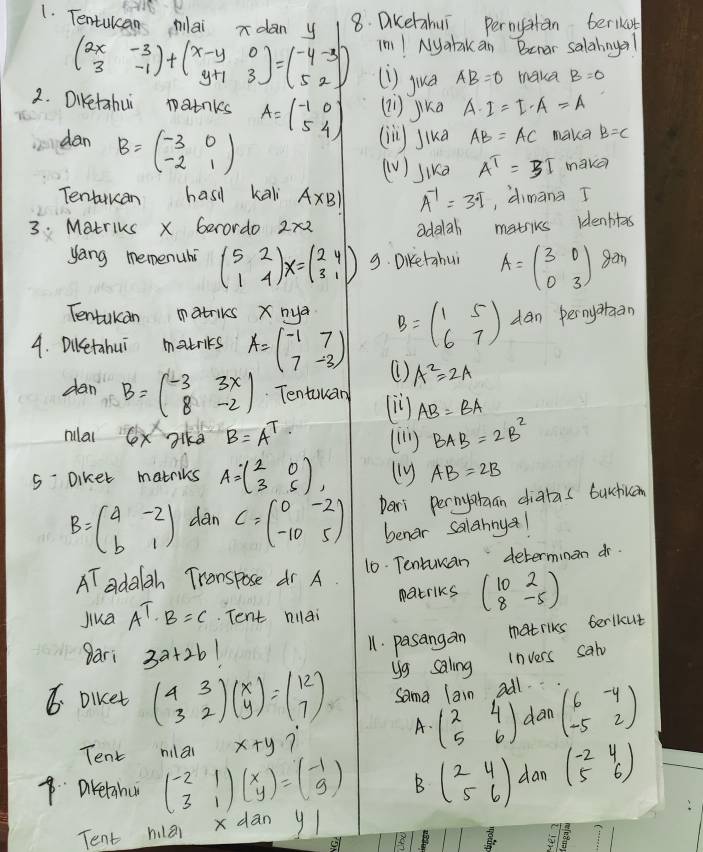 1. Tentukan nilai x dan y
(2x -3
3 -1) + (x-y 0
y+1 3) = (-4 -3
5 2)
2. Diketahui matriks A = (-1 0
5 4)
dan B = (-3 0
-2 1)
Tentukan hasil kali A×B!
3. Matriks X berordo 2×2
yang memenuhi (5 2
1 4) X = (2 4
3 1)
Tentukan matriks X nya
4. Diketahui matriks A = (-1 7
7 -3)
dan B = (-3 3x
8 -2) Tentukan
nilai 6x jika B = Aᵀ.
5. Diket matriks A = (2 0
3 5),
B = (a -2
b 1) dan C = (0 -2
-10 5)
Aᵀ adalah Transpose dr A.
Jika Aᵀ.B = C. Tent nilai
dari 3a+2b!
6. Diket (4 3
3 2)(x
y) = (12
7)
Tent nilai x+y?
7. Diketahui (-2 1
3 1)(x
y) = (-1
9)
Tent nilai x dan y!
8. Diketahui Pernyatan berikut
ini! Nyatakan Benar salahnya!
(i) jika AB=0 maka B=0
(ii) jika A.I = I.A = A
(iii) jika AB = AC maka B=C
(iv) jika Aᵀ = 3I maka
A⁻¹ = 3I, dimana I
adalah matriks identitas
9. Diketahui A = (3 0
0 3) dan
B = (1 5
6 7) dan pernyataan
(i) A² = 2A
(ii) AB = BA
(iii) BAB = 2B²
(iv) AB = 2B
Dari pernyataan diatas buktikan
benar salahnya!
10. Tentukan determinan dr.
matriks (10 2
8 -5)
11. pasangan matriks berikut
yg saling invers satu
sama lain adl...
A. (2 4
5 6) dan (6 -4
-5 2)
B. (2 4
5 6) dan (-2 4
5 6)